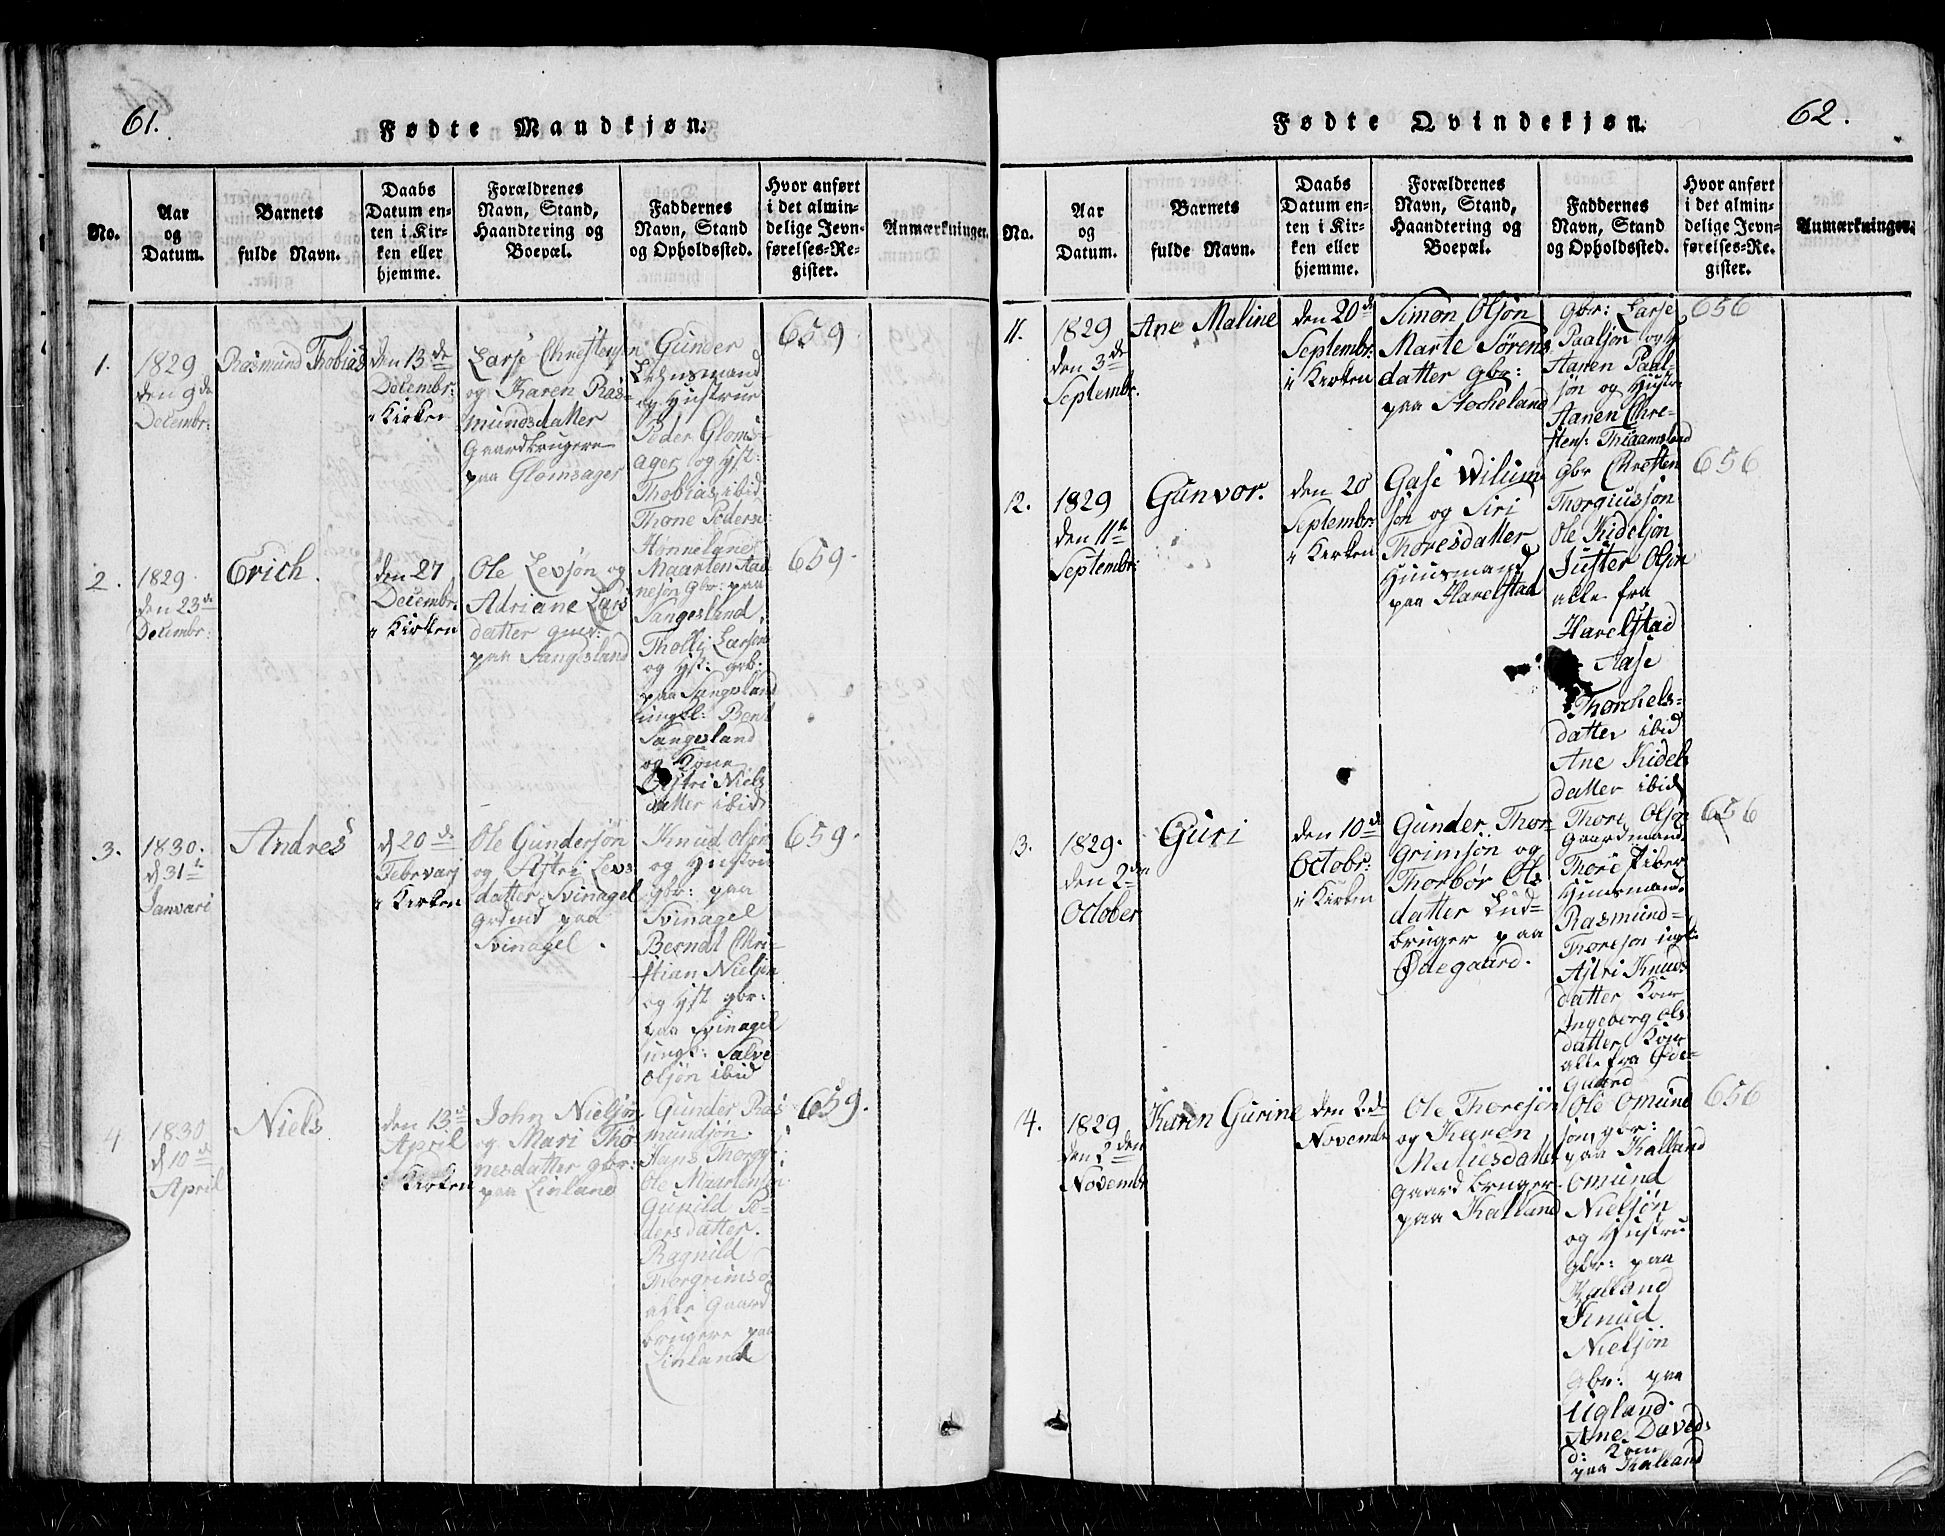 61.
Fødte Mandkjøn.
No.
Aar
og
Datum.
Barnets
fulde Navn.
Daabs
Datum en-
ten i Kir-
ken eller
hjemme.
Forældrenes
Navn, Stand,
Haandtering og
Boepæl.
Faddernes
Navn, Stand
og Opholdssted.
Hvor anført
i det almin-
delige Jevn-
førelses-Re-
gister.
Anmærkninger.
1.
1829
den 9de
Decembr:
Rasmund Thobias
den 13de
Decembr:
i Kirken
Larse Christensen
og Karen Ras-
mundsdatter
Gaardbrugere
paa Glomsager
Gunder
Lehnsmand
og Hustrue
Peder Gloms-
ager og Hst:
Thobias ibid
Thone Peders:
Honneland
659
2.
1829
den 23de
Decembr:
Erich.
den 27
Decembr.
i Kirken
Ole Levsøn og
Adriane Lars
datter gbr:
paa Sangesland
Maarten Aan
nesøn gbr: paa
Sangesland.
Tholli Larsen
og Hst: grb:
paa Sangesland
ungk: Bent
Sangesland
og Kone
Astri Niels
datter ibid
659.
3.
1830.
d 31te
Januari
Andres
d 20de
Februarj
i Kirken
Ole Gundersøn
og Astri Levs
datter Svinagel
grdmd paa
Svinagel.
Knud Olsn
og Hustrue
gbr: paa
Svinagel
Berndt Chri-
stian Nielsen
og Hst gbr:
paa Svinagel
ungk: Salve
Olsøn ibid
659.
4
1830
d 10de
April
Niels
den 13de
April
i Kirken
John Nielsøn
og Mari Thø
nesdatter gbr:
paa Linland
Gunder Ras
mundsøn.
Hans Thorgr:
Ole Maartensøn
Gunild Pe-
dersdatter.
Ragnild
Thorgrimsd
alle Gaard
brugere paa
Linland
659.
62.
Fødte Qvindekjøn.
No.
Aar
og
Datum.
Barnets
fulde Navn.
Daabs
Datum en-
ten i Kir-
ken eller
hjemme.
Forældrenes
Navn, Stand,
Haandtering og
Boepæl.
Faddernes
Navn, Stand
og Opholdssted.
Hvor anført
i det almin-
delige Jevn-
førelses-Re-
gister.
Anmærkninger.
11.
1829
den 3de
Septembr.
Ane Maline
den 20de
Septembr:
i Kirken
Simon Olsøn
Marte Sørens
datter gbr:
paa Stocheland
gbr: Larse
Paalsøn og
Aanen Paal-
søn og Hustr:
Aanen Chre-
stens: Thraamsland
656
12.
1829
den 11te
Septembr:
Gunvor.
den 20
Septembr:
i Kirken
Gase Wilum
søn og Siri
Thoresdatter
Huusmand
paa Harelstad
gbr Chresten
Thorgiussøn
Ole Kidelsøn
Juster Olsøn
alle fra
Harelstad
Aase
Thorchels-
datter ibid
Ane Kidels
datter ibid
656
13.
1829.
den 2den
October
Guri
den 10de
Octobr:
i Kirken
Gunder Thor-
grimsøn og
Thorbør Ols
datter Lud-
bruger paa
Ødegaard.
Thore Olsøn
Gaardmand.
Thore Piber
Huusmand.
Rasmund
Thoresøn ungk:
Astri Knuds
datter Kone
Ingeborg Ols
datter Kone
alle fra Øde-
gaard
656
14.
1829
den 2den
Novembr
Karen Gurine
den 2de
Novembr
Ole Thoresøn
og Karen
datter
Gaardbruger
paa Kalland
Ole Omund
søn gbr:
paa Kalland
Omund
Nielsøn
og Hustru
gbr: paa
Kalland
Knud
Nielsøn
gbr: paa
Ugland.
Ane Davids
d:
paa Kalland
656